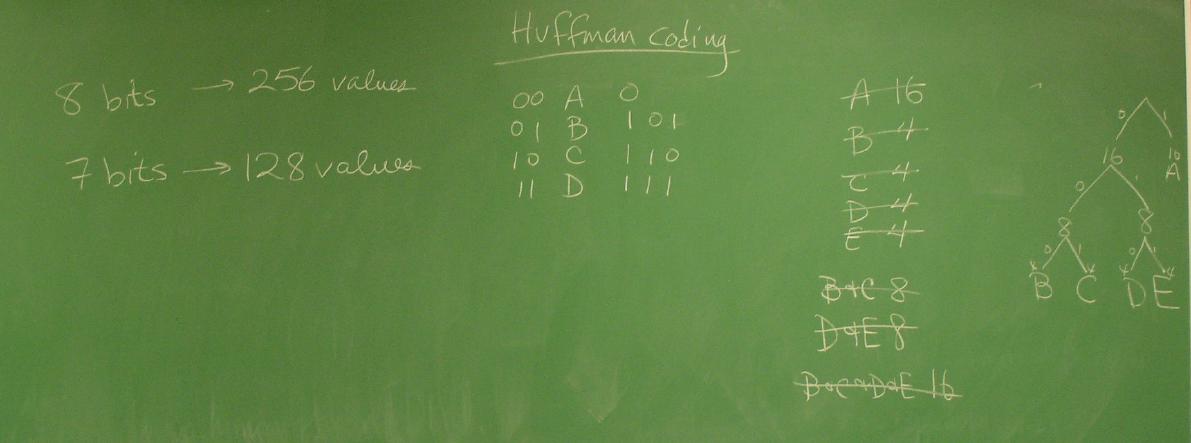 Huffman coding
8 bits → 256 values
7 bits → 128 values
00 A 0
01 B 101
10 C 110
11 D 111
A 16
B 4
C 4
D 4
E 4
B+C 8
D+E 8
B+C+D+E 16
0 1
16 16
A
0 1
8 8
0 1 0 1
4 4 4 4
B C D E